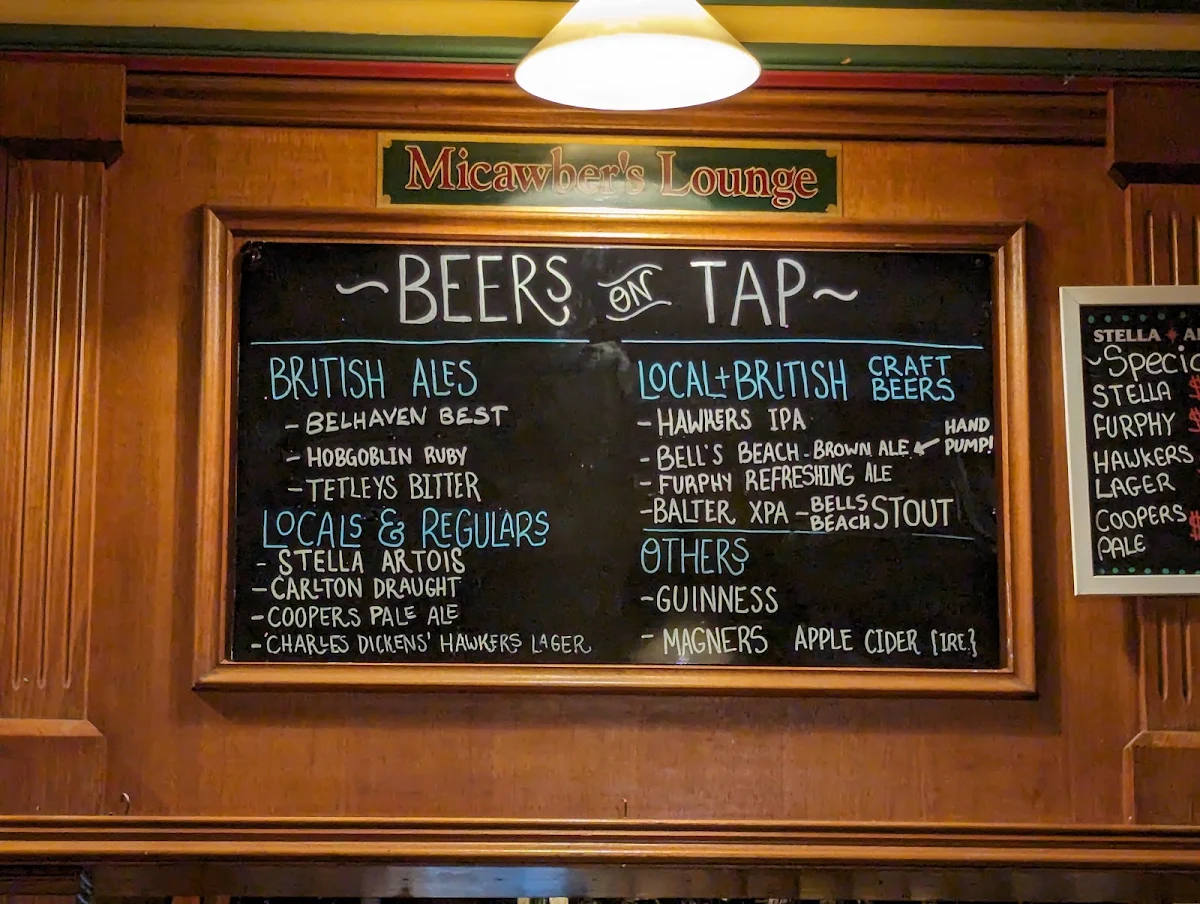 Micawber's Lounge
~BEERS ON TAP~
BRITISH ALES
- BELHAVEN BEST
- HOBGOBLIN RUBY
- TETLEYS BITTER
LOCALS & REGULARS
- STELLA ARTOIS
- CARLTON DRAUGHT
- COOPERS PALE ALE
- 'CHARLES DICKENS' HAWKERS LAGER
LOCAL + BRITISH CRAFT BEERS
- HAWKERS IPA
- BELL'S BEACH - BROWN ALE HAND PUMP!
- FURPHY REFRESHING ALE
- BALTER XPA - BELLS BEACH STOUT
OTHERS
- GUINNESS
- MAGNERS APPLE CIDER {IRE.}
STELLA
STELLA
FURPHY
HAWKERS
LAGER
COOPERS
PALE